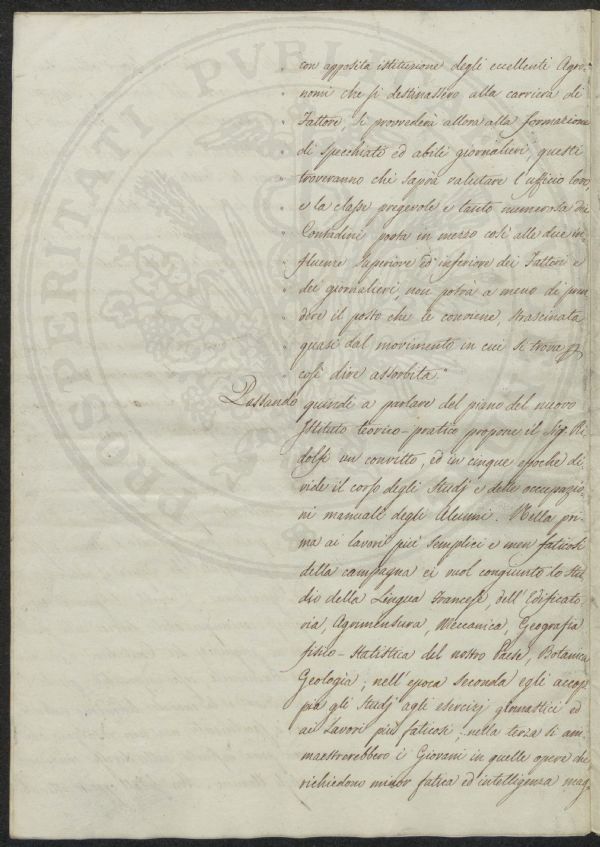 PROSPERITATI PVBLI
" con apposita istituzione degli eccellenti Agro-
" nomi che si destinassero alla carriera di
" Fattore, si provvederà allora alla formazione
" di specchiati ed abili giornalieri; questi
" troveranno chi saprà valutare l'uffizio loro,
" e la classe pregevole e tanto numerosa dei
" Contadini posta in mezzo così alle due in-
" fluenze superiore ed inferiore dei Fattori e
" dei giornalieri, non potrà a meno di pren-
" dere il posto che le conviene, strascinata
" quasi dal movimento in cui si trova p
" così dire assorbita."
Passando quindi a parlare del piano del nuovo
Istituto teorico-pratico propone il Sig. Ri-
dolfi un convitto, ed in cinque epoche di-
vide il corso degli Studj e delle occupazio-
ni manuali degli Alunni. Nella pri-
ma ai lavori più semplici e men faticosi
della campagna ei vuol congiunto lo Stu-
dio della Lingua Francese, dell'Edificato-
ria, Agrimensura, Meccanica, Geografia
fisico-statistica del nostro Paese, Botanica
Geologia; nell'epoca seconda egli accop-
pia gli Studj agli esercizj ginnastici ed
ai Lavori più faticosi; nella terza si am-
maestrerebbero i Giovani in quelle opere che
richiedono minor fatica ed intelligenza mag-